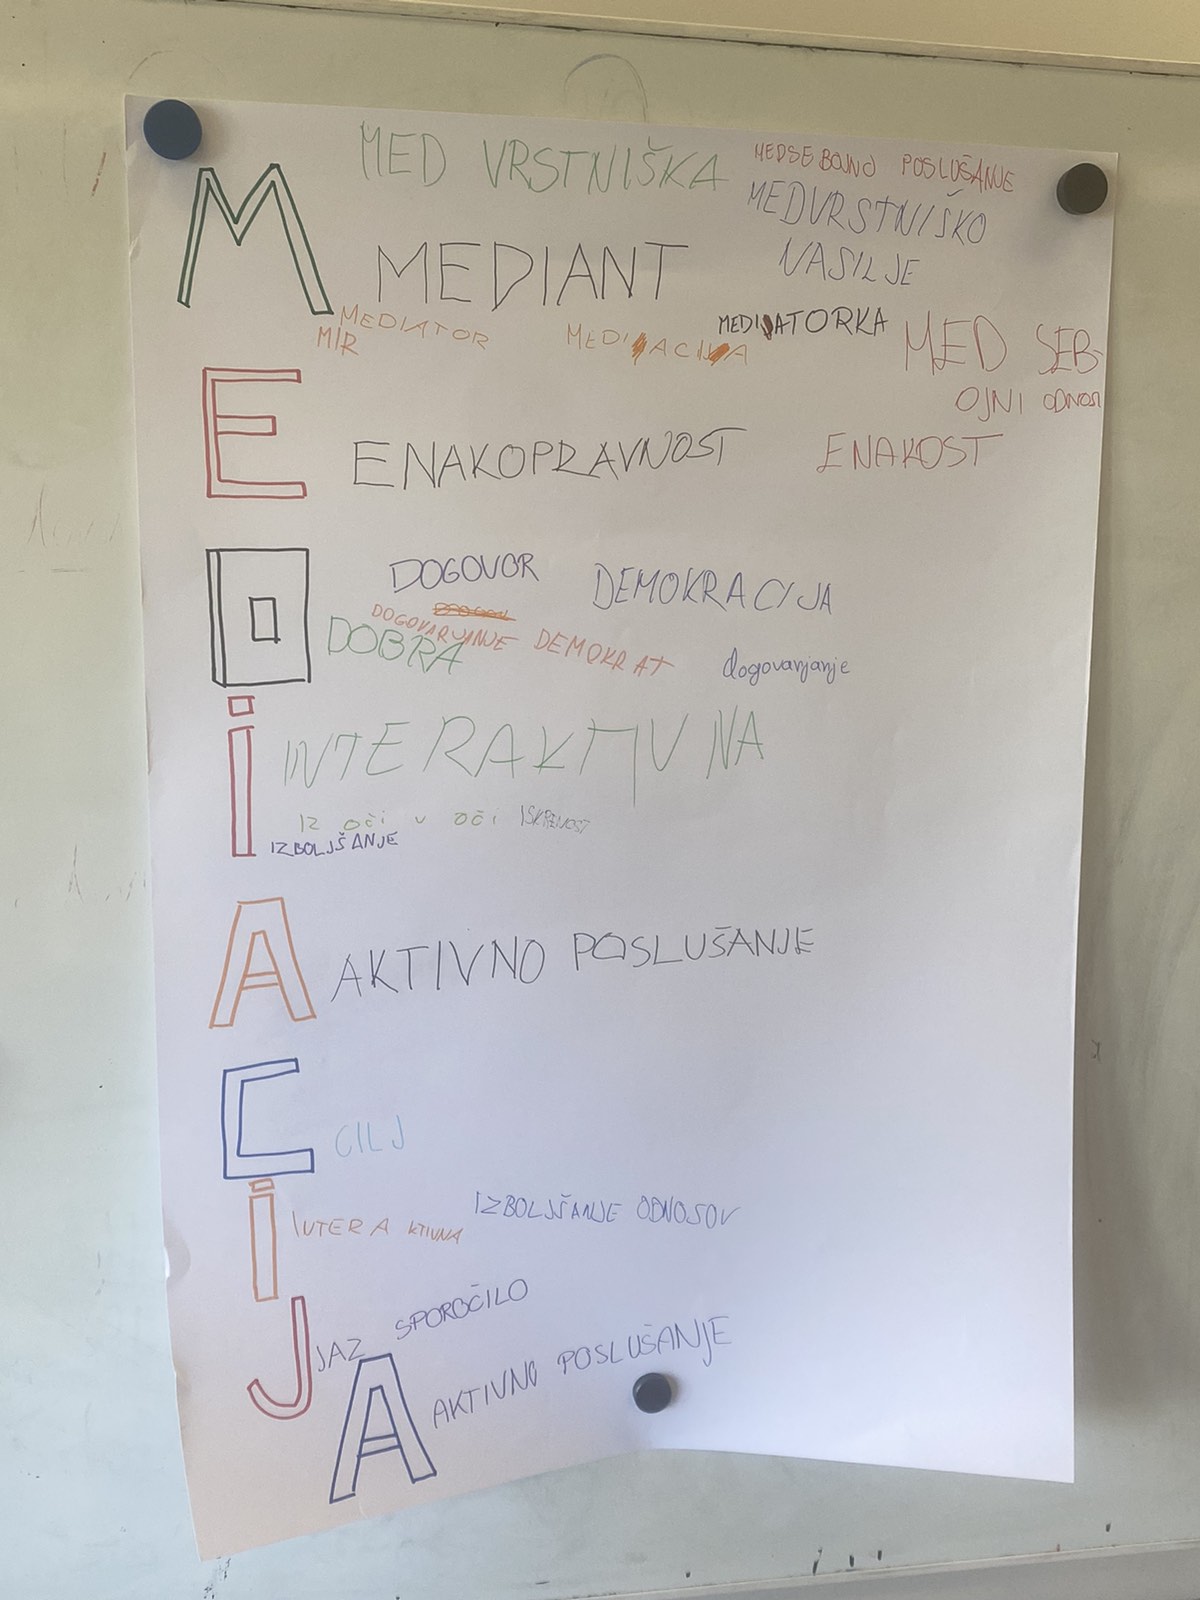 M
MED VRSTNIŠKA
MEDSEBOJNO POSLUŠANJE
MEDVRSTNIŠKO
NASILJE
MEDIANT
MEDIATOR
MIR
MEDIACIJA
MEDIATORKA
MED SEB-
OJNI ODNOSI
E
ENAKOPRAVNOST
ENAKOST
D
DOGOVOR
DEMOKRACIJA
DOGOVARJANJE
DEMOKRAT
DOBRA
dogovarjanje
I
INTERAKTIVNA
IZ OČI V OČI
ISKRENOST
IZBOLJŠANJE
A
AKTIVNO POSLUŠANJE
C
CILJ
I
INTERAKTIVNA
IZBOLJŠANJE ODNOSOV
J
JAZ SPOROČILO
A
AKTIVNO POSLUŠANJE